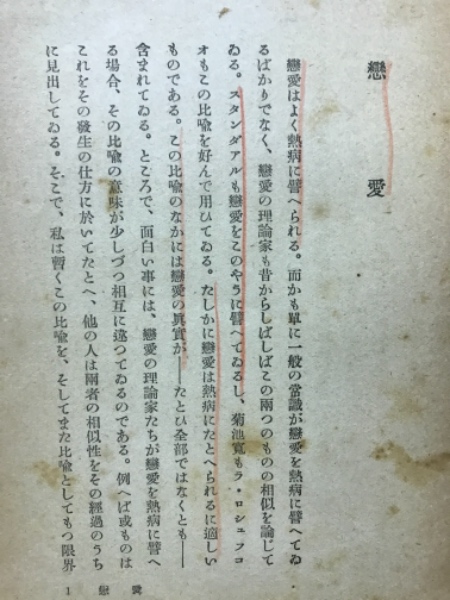 戀愛
戀愛はよく熱病に譬へられる。而かも單に一般の常識が戀愛を熱病に譬へてゐ
るばかりでなく、戀愛の理論家も昔からしばしばこの兩つのものの相似を論じて
ゐる。スタンダアルも戀愛をこのやうに譬へてゐるし、菊池寬もラ・ロシュフコ
オもこの比喩を好んで用ひてゐる。たしかに戀愛は熱病にたとへられるに適しい
ものである。この比喩のなかには戀愛の眞實が——たとひ全部ではなくとも——
含まれてゐる。ところで、面白い事には、戀愛の理論家たちが戀愛を熱病に譬へ
る場合、その比喩の意味が少しづつ相互に違つてゐるのである。例へば或ものは
これをその發生の仕方に於いてたとへ、他の人は兩者の相似性をその經過のうち
に見出してゐる。そこで、私は暫くこの比喩を、そしてまた比喩としてもつ限界
1 戀愛